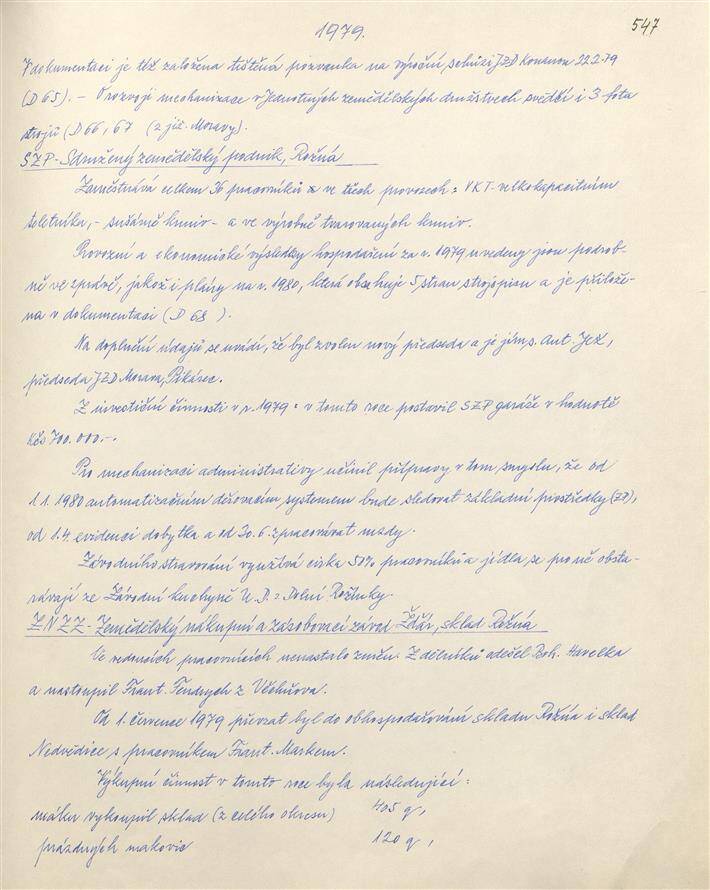 1979.
547
V dokumentaci je též založena tištěná pozvánka na výroční schůzi JZD Konanou 22.2.79
(D 65). - O rozvoji mechanizace v Jednotných zemědělských družstvech svědčí i 3 fota
strojů (D 66, 67 (z již. Moravy).
SZP - Sdružený zemědělský podnik, Rožná
Zaměstnává celkem 36 pracovníků a ve třech provozech: VKT - velkokapacitním
teletníku, - sušárně krmiv - a ve výrobně tvarovaných krmiv.
Provozní a ekonomické výsledky hospodaření za r. 1979 uvedeny jsou podrob-
ně ve zprávě, jakož i plány na r. 1980, která obsahuje 5 stran strojopisu a je přilože-
na v dokumentaci (D 68 ).
Na doplnění údajů se uvádí, že byl zvolen nový předseda a je jím s. Ant. Jež,
předseda JZD Morava, Pikárec.
Z investiční činnosti v r. 1979: v tomto roce postavil SZP garáže v hodnotě
Kčs 700.000.-.
Pro mechanizaci administrativy učinil přípravy v tom smyslu, že od
1.1.1980 automatizačním děrovacím systemem bude sledovat základní prostředky (ZP),
od 1.4. evidenci dobytka a od 30.6. zpracovávat mzdy.
Závodního stravování využívá cirka 50% pracovníků a jídla se pro ně obsta-
rávají ze Závodní kuchyně U.D. Dolní Rožínky.
ZNZZ - Zemědělský nákupní a zásobovací závod Žďár, sklad Rožná
Ve vedoucích pracovnících nenastalo změn. Z dělníků odešel Boh. Havelka
a nastoupil Frant. Tendrych z Věchnova.
Od 1. července 1979 převzat byl do obhospodařování skladu Rožná i sklad
Nedvědice s pracovníkem Frant. Markem.
Výkupní činnost v tomto roce byla následující:
máku vykoupil sklad (z celého okresu) 405 q,
prázdných makovic 120 q,